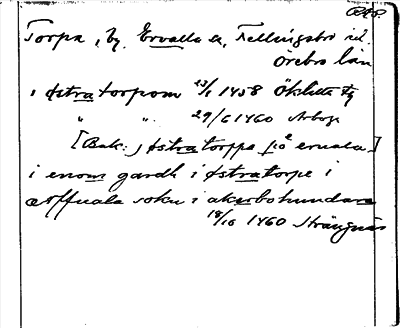 Torpa, by, Ervalla sn, Fellingsbro hd.
Örebro län
i Østratorpom 23/1 1458
" " 29/6 1460 Arboga
[Bak:] Østratorppa på ervala]
i enom gardh i Østratorpe i
soku i akerbohundare
18/10 1460 Strängnäs